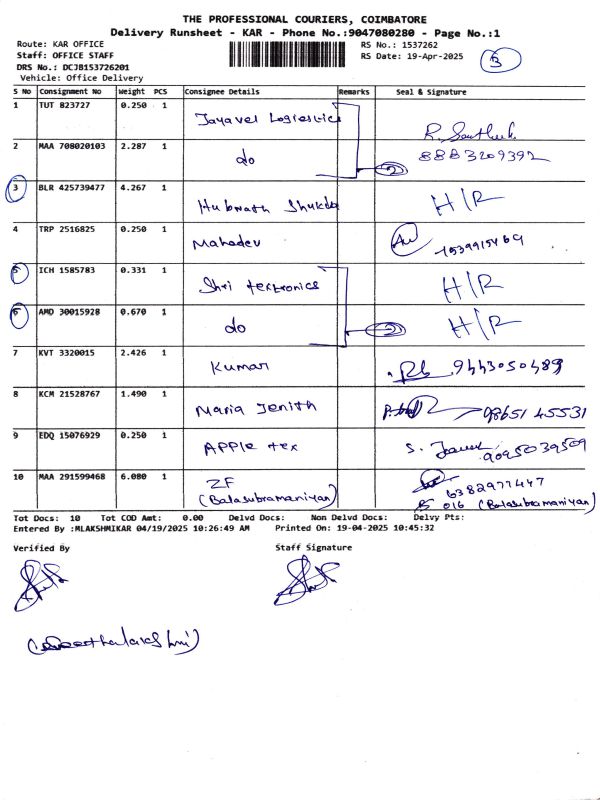 THE PROFESSIONAL COURIERS, COIMBATORE
Delivery Runsheet - KAR - Phone No.:9047080280 - Page No.:1
Route: KAR OFFICE
Staff: OFFICE STAFF
DRS No.: DCJB153726201
Vehicle: Office Delivery
RS No.: 1537262
RS Date: 19-Apr-2025
3
S No Consignment No Weight PCS Consignee Details Remarks Seal & Signature
1 TUT 823727 0.250 1 Jayavel Logistics
2 MAA 708020103 2.287 1 do 2 8883209392
3 BLR 425739477 4.267 1 Hubnath Shukda H/R
4 TRP 2516825 0.250 1 Mahadev
5 ICH 1585783 0.331 1 Shri textronics H/R
6 AMD 30015928 0.670 1 do 2 H/R
7 KVT 3320015 2.426 1 Kumar 9443050489
8 KCM 21528767 1.490 1 Maria Jenith 9865145531
9 EDQ 15076929 0.250 1 APPLE tex S. 9095039509
10 MAA 291599468 6.080 1 ZF (Balasubramaniyan) 6382977447 016 (Balasubramaniyan)
Tot Docs: 10 Tot COD Amt: 0.00 Delvd Docs: Non Delvd Docs: Delvy Pts:
Entered By :MLAKSHMIKAR 04/19/2025 10:26:49 AM Printed On: 19-04-2025 10:45:32
Verified By Staff Signature